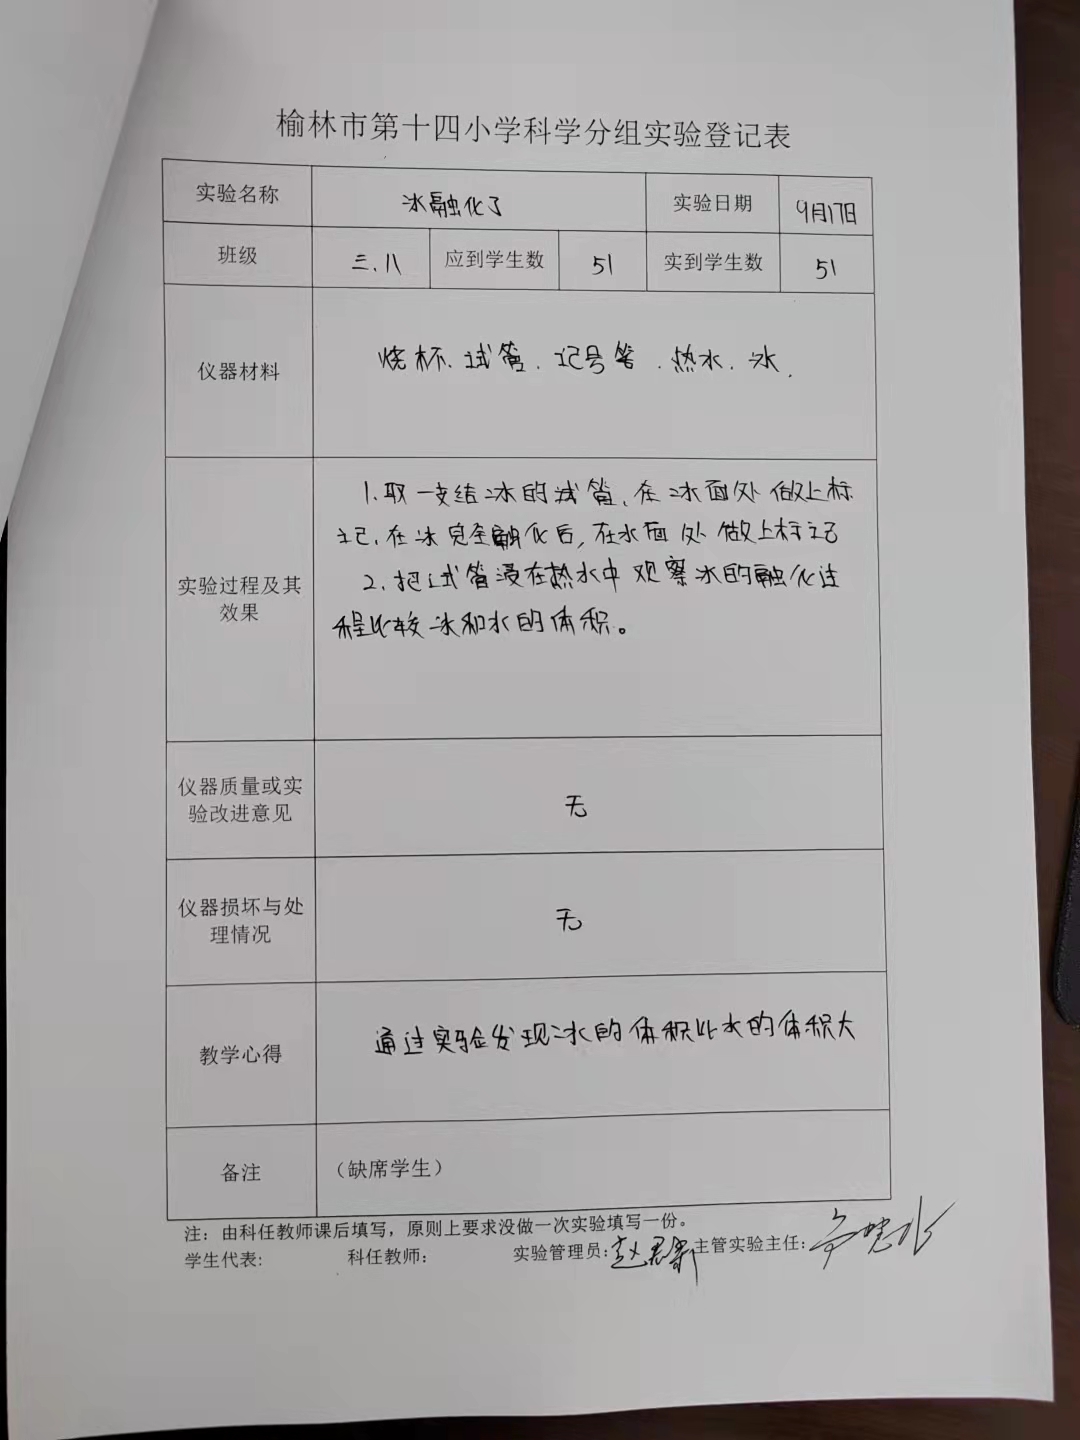 榆林市第十四小学科学分组实验登记表
实验名称 冰融化了 实验日期 9月17日
班级 三.八 应到学生数 51 实到学生数 51
仪器材料 烧杯、试管、记号笔、热水、冰.
1.取一支结冰的试管,在冰面处做上标
记,在冰完全融化后,在水面处做上标记
2.把试管浸在热水中观察冰的融化过
程比较冰和水的体积。
实验过程及其
效果
仪器质量或实
验改进意见
无
仪器损坏与处
理情况
无
教学心得 通过实验发现冰的体积比水的体积大
备注 (缺席学生)
注:由科任教师课后填写,原则上要求没做一次实验填写一份。
学生代表: 科任教师: 实验管理员: 主管实验主任: